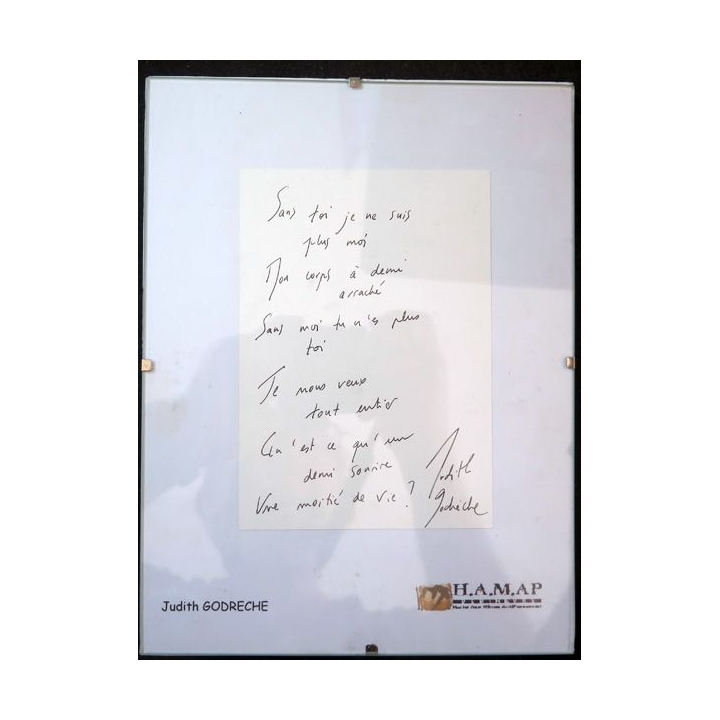 Sans toi je ne suis
plus moi
Mon corps à demi
arraché
Sans moi tu n'es plus
toi
Je nous veux
tout entier
Qu'est ce qu'un
demi sourire
Une moitié de vie ?
Judith
Godrèche
Judith GODRECHE
H.A.M.AP